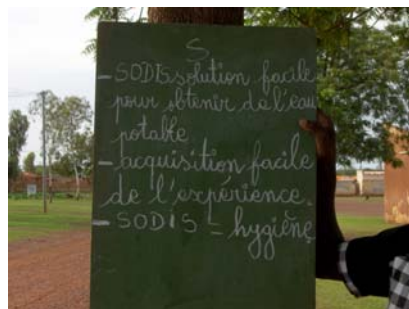 S
- SODIS solution facile
pour obtenir de l'eau
potable
- acquisition facile
de l'expérience.
- SODIS = hygiène